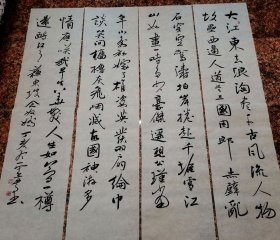 大江東去浪淘尽千古風流人物
故壘西邊人道是三國周郎赤壁亂
石穿空驚濤拍岸捲起千堆雪江
山如畫一時多少豪傑遙想公瑾當
年小喬初嫁了雄姿英發羽扇綸巾
談笑間檣櫓灰飛煙滅故國神游多
情應笑我早生華髮人生如夢一樽
還酹江月 蘇東坡念奴嬌